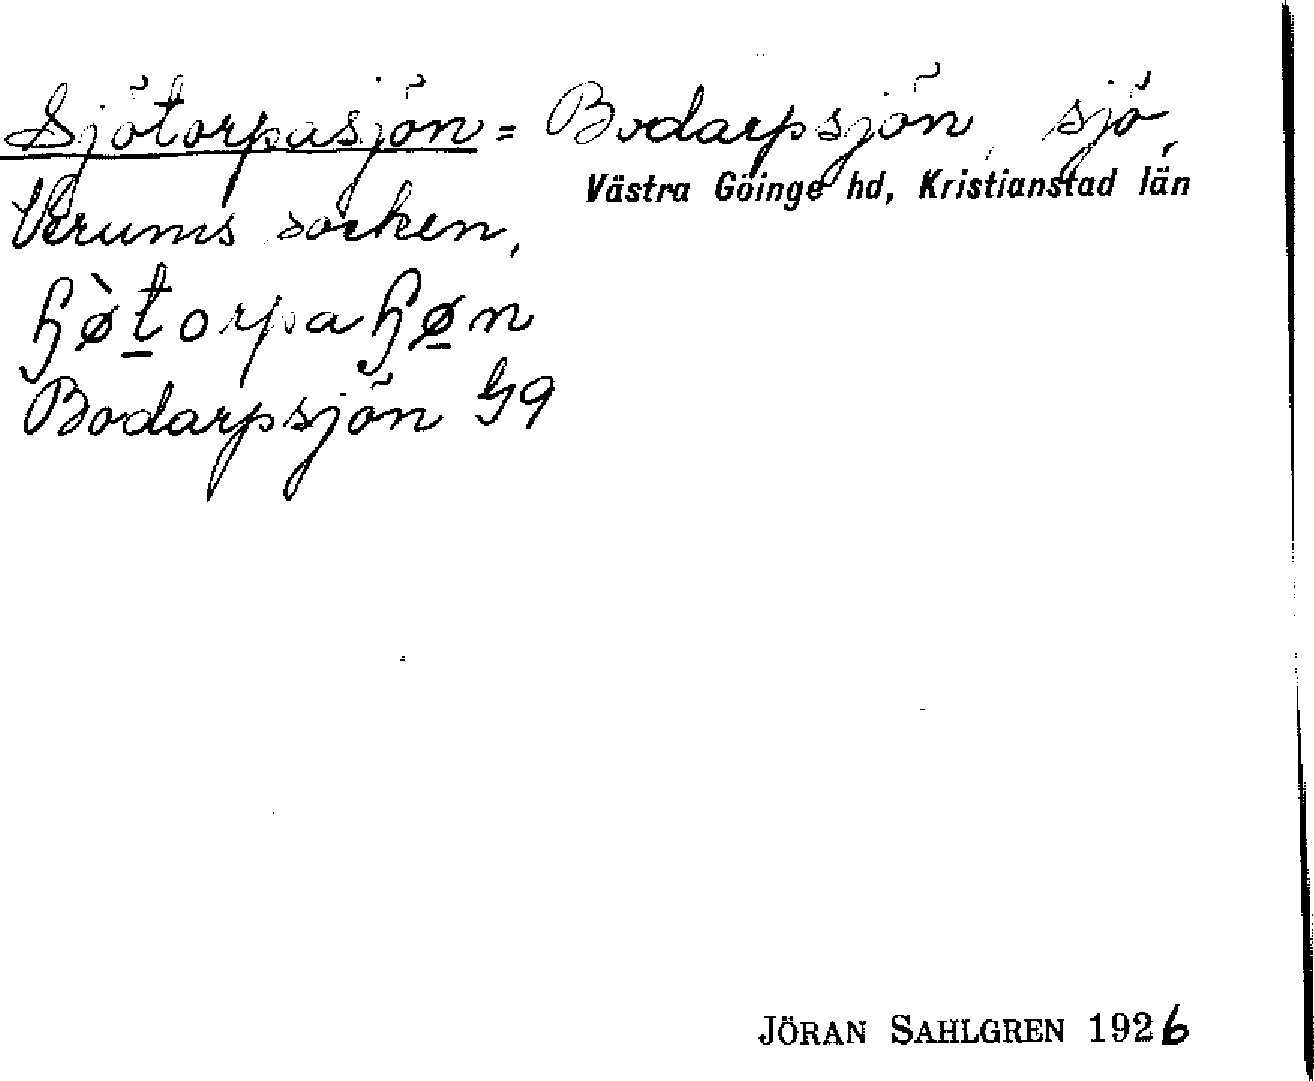 Sjötorpasjön = Bodarpsjön, sjö,
Västra Göinge hd, Kristianstad län
Verums socken,
ɧø̀t̲orpaɧø̲n
Bodarpsjön G9
JÖRAN SAHLGREN 1926